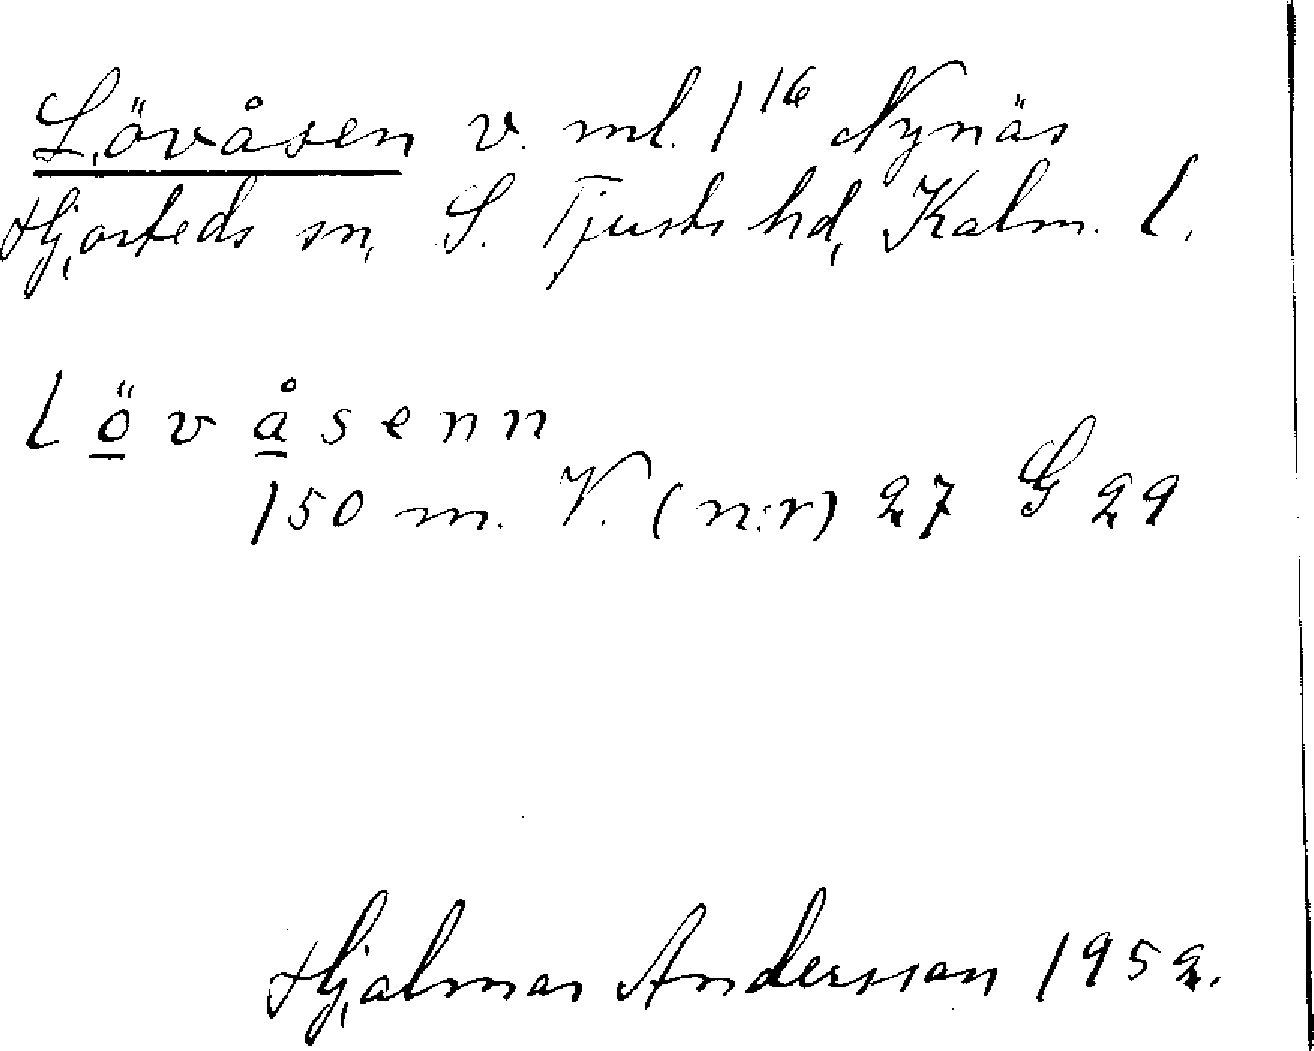 Lövåsen v. ml. 1¹⁶ Nynäs
Hjorteds sn, S. Tjusts hd, Kalm. l.
lövåsenn
150 m. V. (n:r) 27 G 29
Hjalmar Andersson 1952.